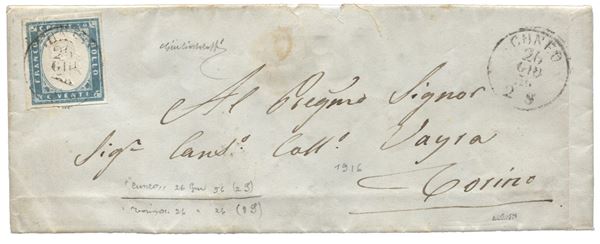 FRANCO BOLLO
C. VENTI
CUNEO
26
GIU
CUNEO
26
GIU
2 S
Al Pregmo Signor
Sigr Cands. Coll. Vayra
Torino
1916
Cuneo 26 Giu 56 (2S)
Torino 26 " 26